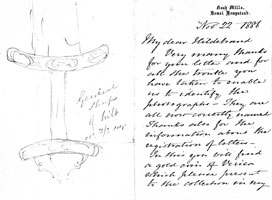 General
shape
of hilt
Nash Mills,
Hemel Hempsted.
Nov 22 1886
My dear Hildebrand
Very many thanks
for your letter and for
all the trouble you
have taken to enable
us to identify the
photographs – They are
all now correctly named
Thanks also for the
information about the
registration of letters –
In this you will find
a gold coin of Verica
which please present
to the collection in my